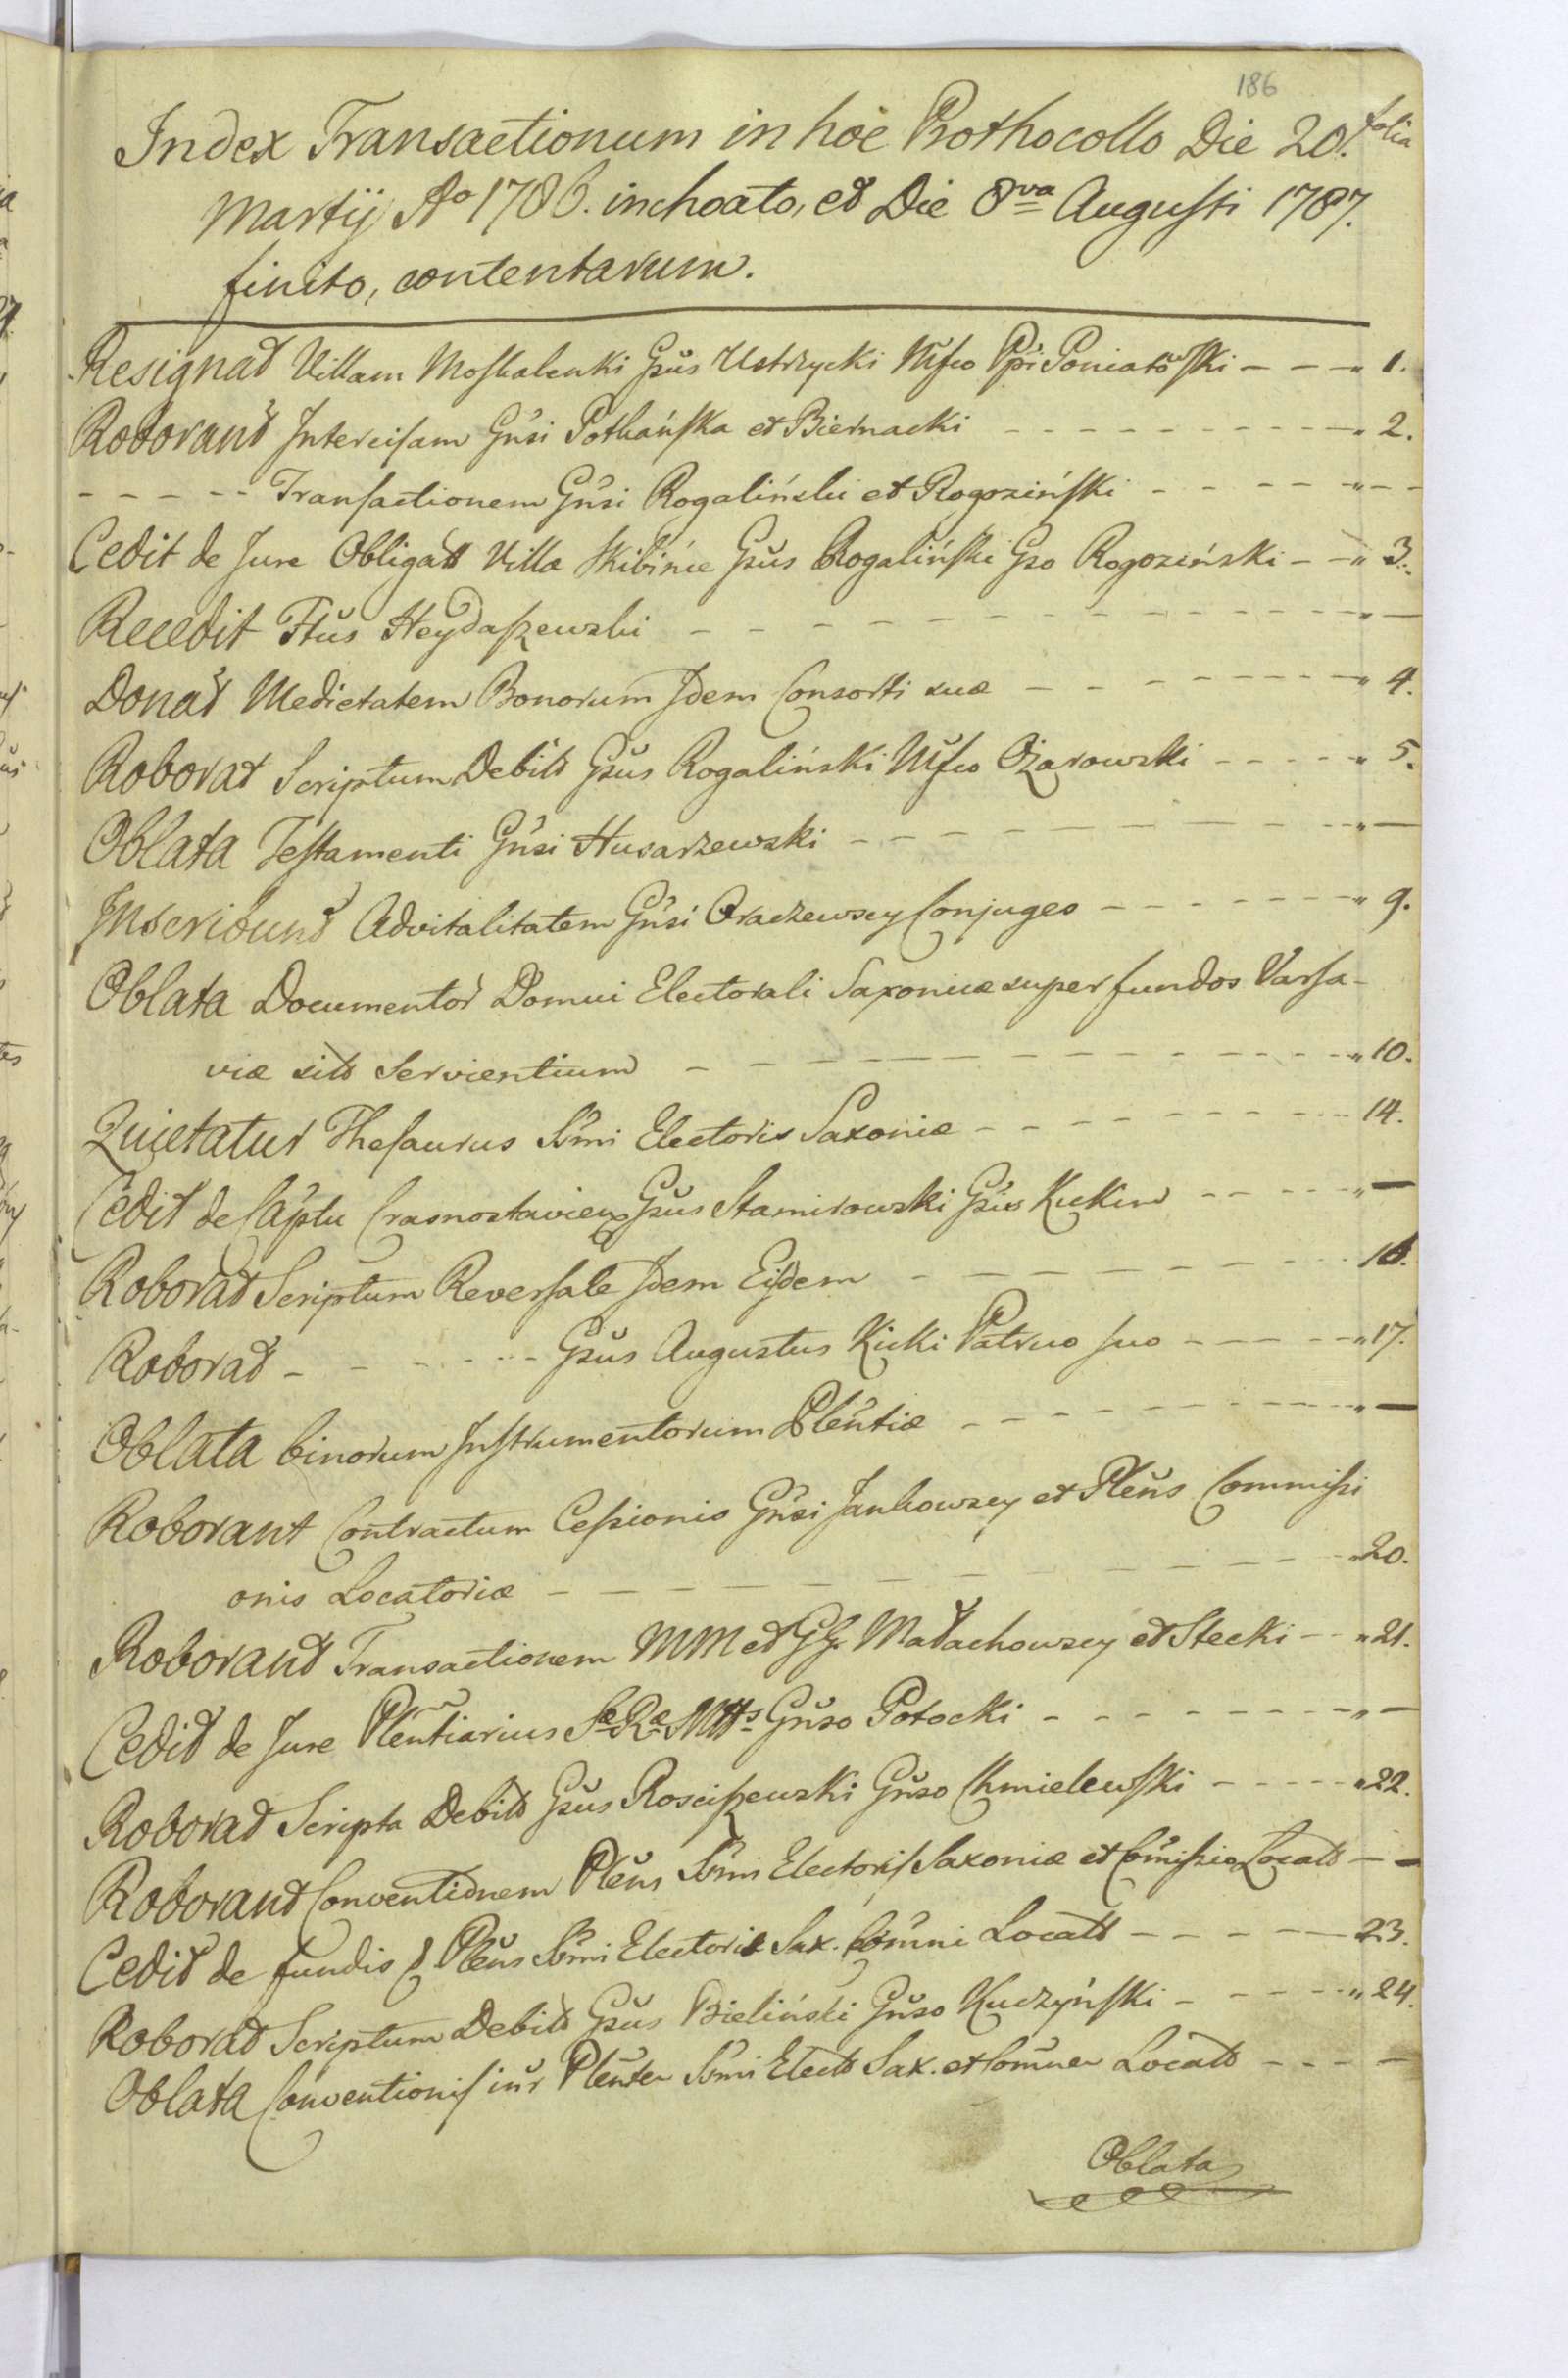 186
Index Transactionum in hoc Prothocollo Die 20. folia
Martij Ao 1786. inchoato, et Die 8va Augusti 1787.
finito, contentarum.
Resignat Villam Moskalenki Gsus Ustrzycki Mfco Ppi Poniatowski - - - " 1.
Roborant Intercisam Gnsi Potkańska et Biernacki - - - " 2.
- - - - - Transactionem Gnsi Rogaliński et Rogoziński - - - " - -
Cedit de Jure Obligatt Villa Skibińce Gsus Rogaliński Gso Rogoziński - - " 3.
Recedit Ftus Heydaszewski - - - " -
Donat Medietatem Bonorum Idem Consorti suæ - - - " 4.
Roborat Scriptum Debiti Gsus Rogaliński Mfco Ożarowski - - - " 5.
Oblata Testamenti Gnsi Husarzewski - - - " -
Inscribunt Advitalitatem Gnsi Oraczewscy Conjuges - - - " 9.
Oblata Documentor Domui Electorali Saxonicæ super fundos Varsa-
viæ sitt Servientium - - - " 10.
Quietatur Thesaurus Smi Electoris Saxoniæ - - - 14.
Cedit de Captu Crasnostavien Gsus Stamirowski Gsis Kickim - - - " -
Roborat Scriptum Reversale Idem Eisdem - - - 16.
Roborat - - - - - - Gsus Augustus Kicki Patruo suo - - - " 17.
Oblata binorum Instrumentorum Plentiæ - - - " -
Roborant Contractum Cessionis Gnsi Jankowscy et Plens Commissi
onis Locatoriæ - - - " 20.
Roborant Transactionem MM et GG Małachowscy et Stecki - - " 21.
Cedit de Jure Plentiarius Sæ Ræ Mttis Gnso Potocki - - - " -
Roborat Scripta Debiti Gsus Rosciszewski Gnso Chmielewski - - - " 22.
Roborant Conventionem Plens Smi Electoris Saxoniæ et Comissio Locatt - -
Cedit de fundis Plens Smi Electoris Sax. Comni Locatt - - - 23.
Roborat Scriptum Debiti Gsus Bieliński Gnso Kuczyński - - - " 24.
Oblata Conventionis inr Plenten Smi Electt Sax. et Comnen Locatt - - - -
Oblata